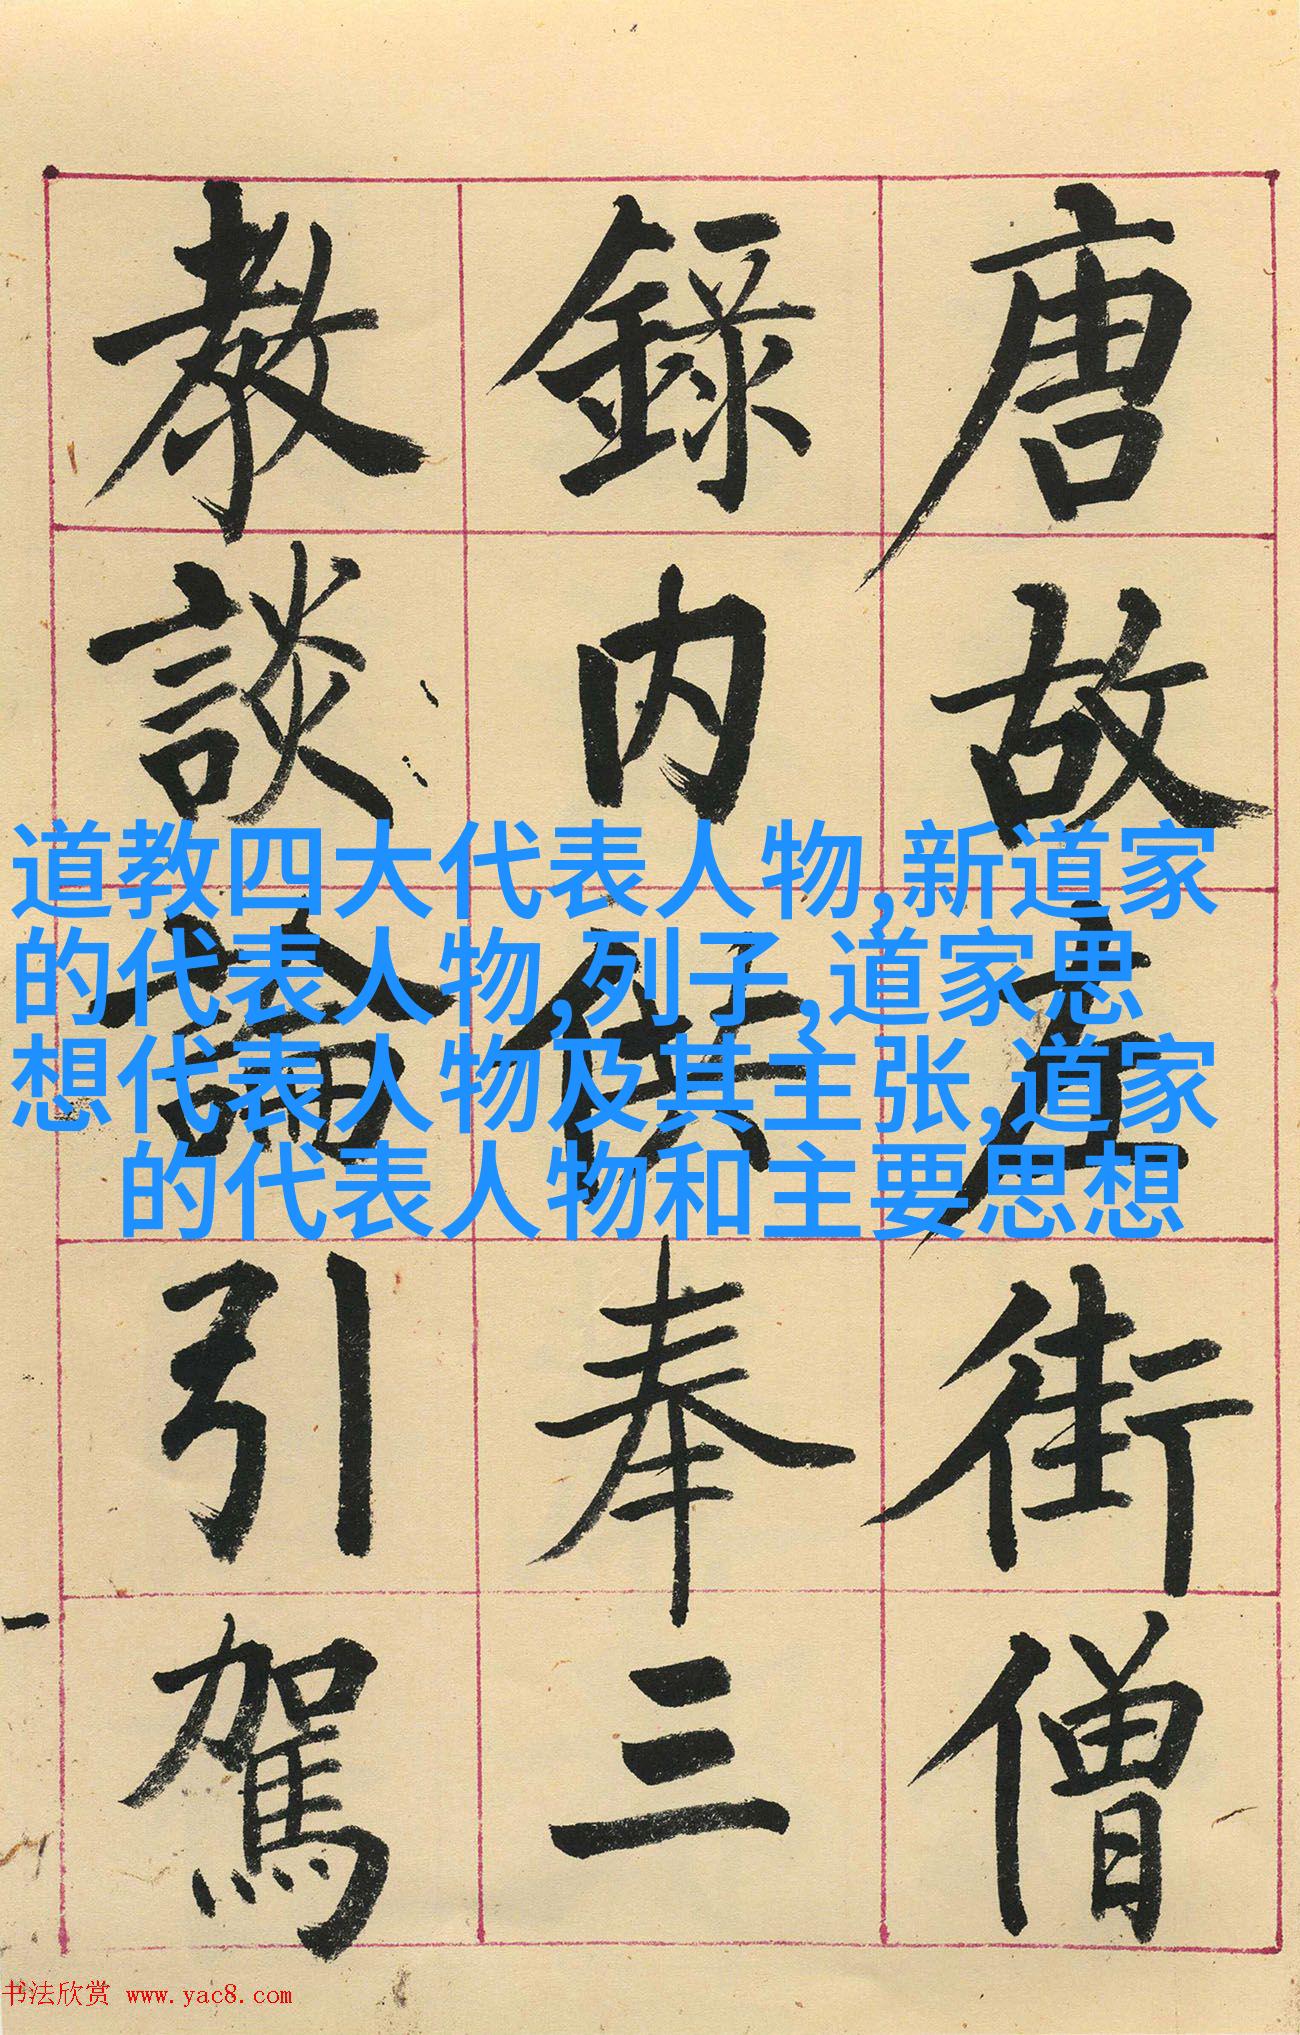 唐故左街僧
錄内供奉三
教談論引駕
道教四大代表人物,新道家
的代表人物,列子,道家思
想代表人物及其主张,道家
的代表人物和主要思想
书法欣赏 www.yac8.com